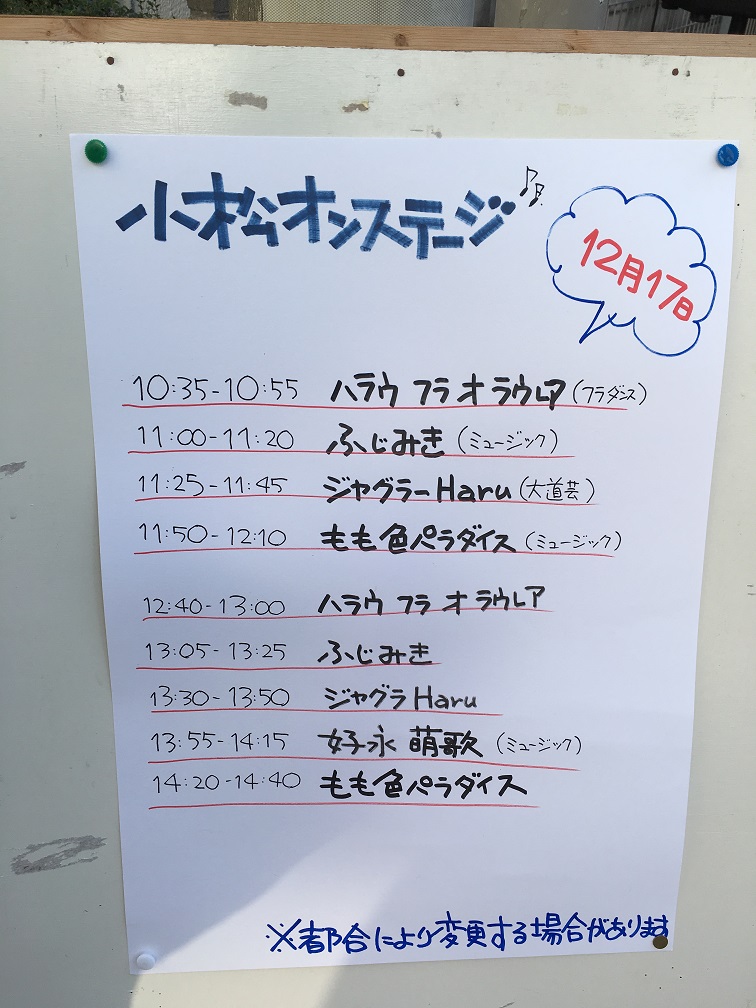 小松オンステージ♪♬
12月17日
10:35-10:55 ハラウ フラ オ ラウレア(フラダンス)
11:00-11:20 ふじみき(ミュージック)
11:25-11:45 ジャグラーHaru(大道芸)
11:50-12:10 もも色パラダイス(ミュージック)
12:40-13:00 ハラウ フラ オ ラウレア
13:05-13:25 ふじみき
13:30-13:50 ジャグラHaru
13:55-14:15 好永 萌歌(ミュージック)
14:20-14:40 もも色パラダイス
※都合により変更する場合があります